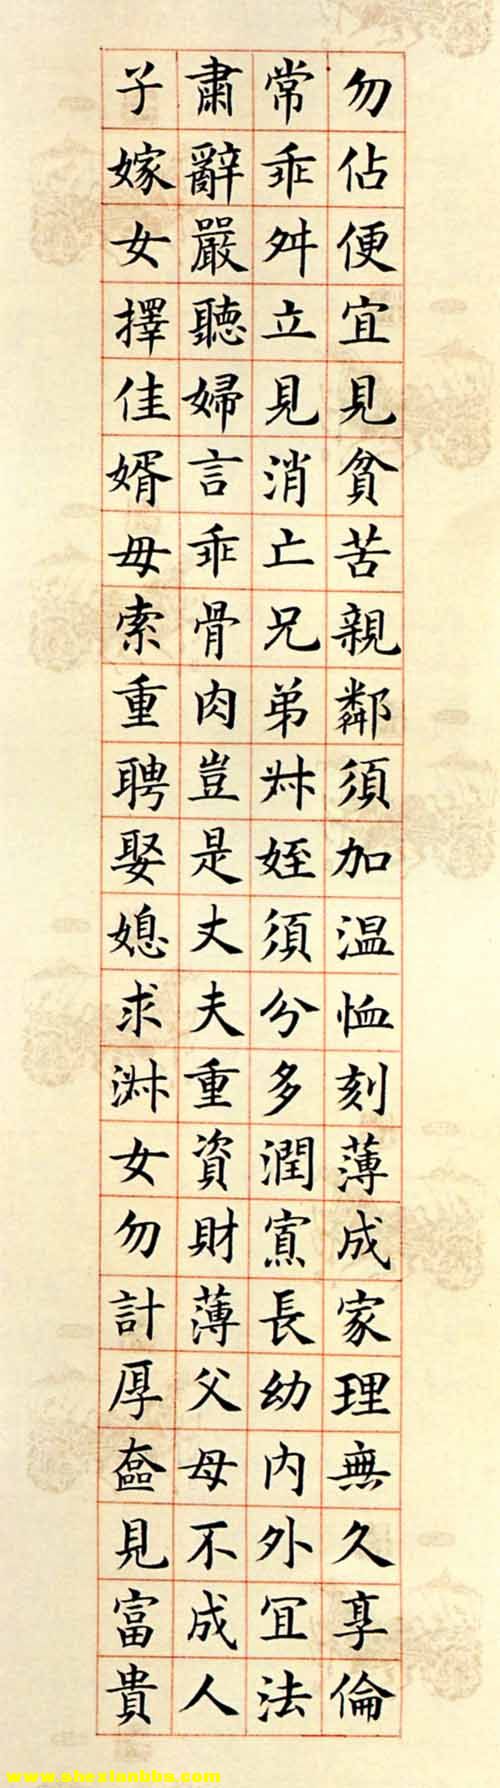 勿佔便宜見貧苦親鄰須加温恤刻薄成家理無久享倫
常乖舛立見消亡兄弟叔姪須分多潤寡長幼内外冝法
肅辭嚴聽婦言乖骨肉豈是丈夫重資財薄父母不成人
子嫁女擇佳婿毋索重聘娶媳求淑女勿計厚奩見富貴
www.shexianbbs.com